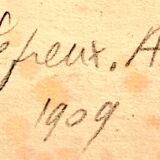 efreux. A
1909